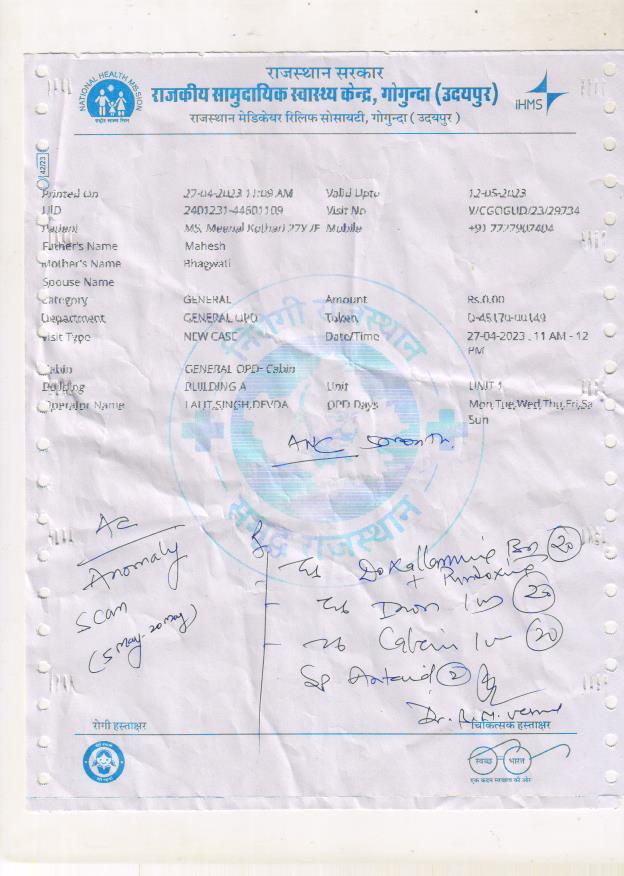 राजस्थान सरकार
राजकीय सामुदायिक स्वास्थ्य केन्द्र, गोगुन्दा (उदयपुर)
राजस्थान मेडिकेयर रिलिफ सोसायटी, गोगुन्दा ( उदयपुर )
NATIONAL HEALTH MISSION
iHMS
42/23
Printed On 27-04-2023 11:09 AM Valid Upto 12-05-2023
UID 2401231-44601109 Visit No V/CGOGUD/23/29734
Patient MS. Meenal Kothari 27Y/F Mobile +91 7727907404
Father's Name Mahesh
Mother's Name Bhagwati
Spouse Name
Category GENERAL Amount Rs.0.00
Department GENERAL OPD Token O-45170-00149
Visit Type NEW CASE Date/Time 27-04-2023 , 11 AM - 12 PM
Cabin GENERAL OPD- Cabin
Building BUILDING A Unit UNIT 1
Operator Name LALIT.SINGH.DEVDA OPD Days Mon,Tue,Wed,Thu,Fri,Sa
Sun
निरोगी राजस्थान
समृद्ध राजस्थान
ANC
Anomaly
scan
(5 May - 20 May)
20
20
20
2
रोगी हस्ताक्षर चिकित्सक हस्ताक्षर
स्वच्छ भारत
एक कदम स्वच्छता की ओर